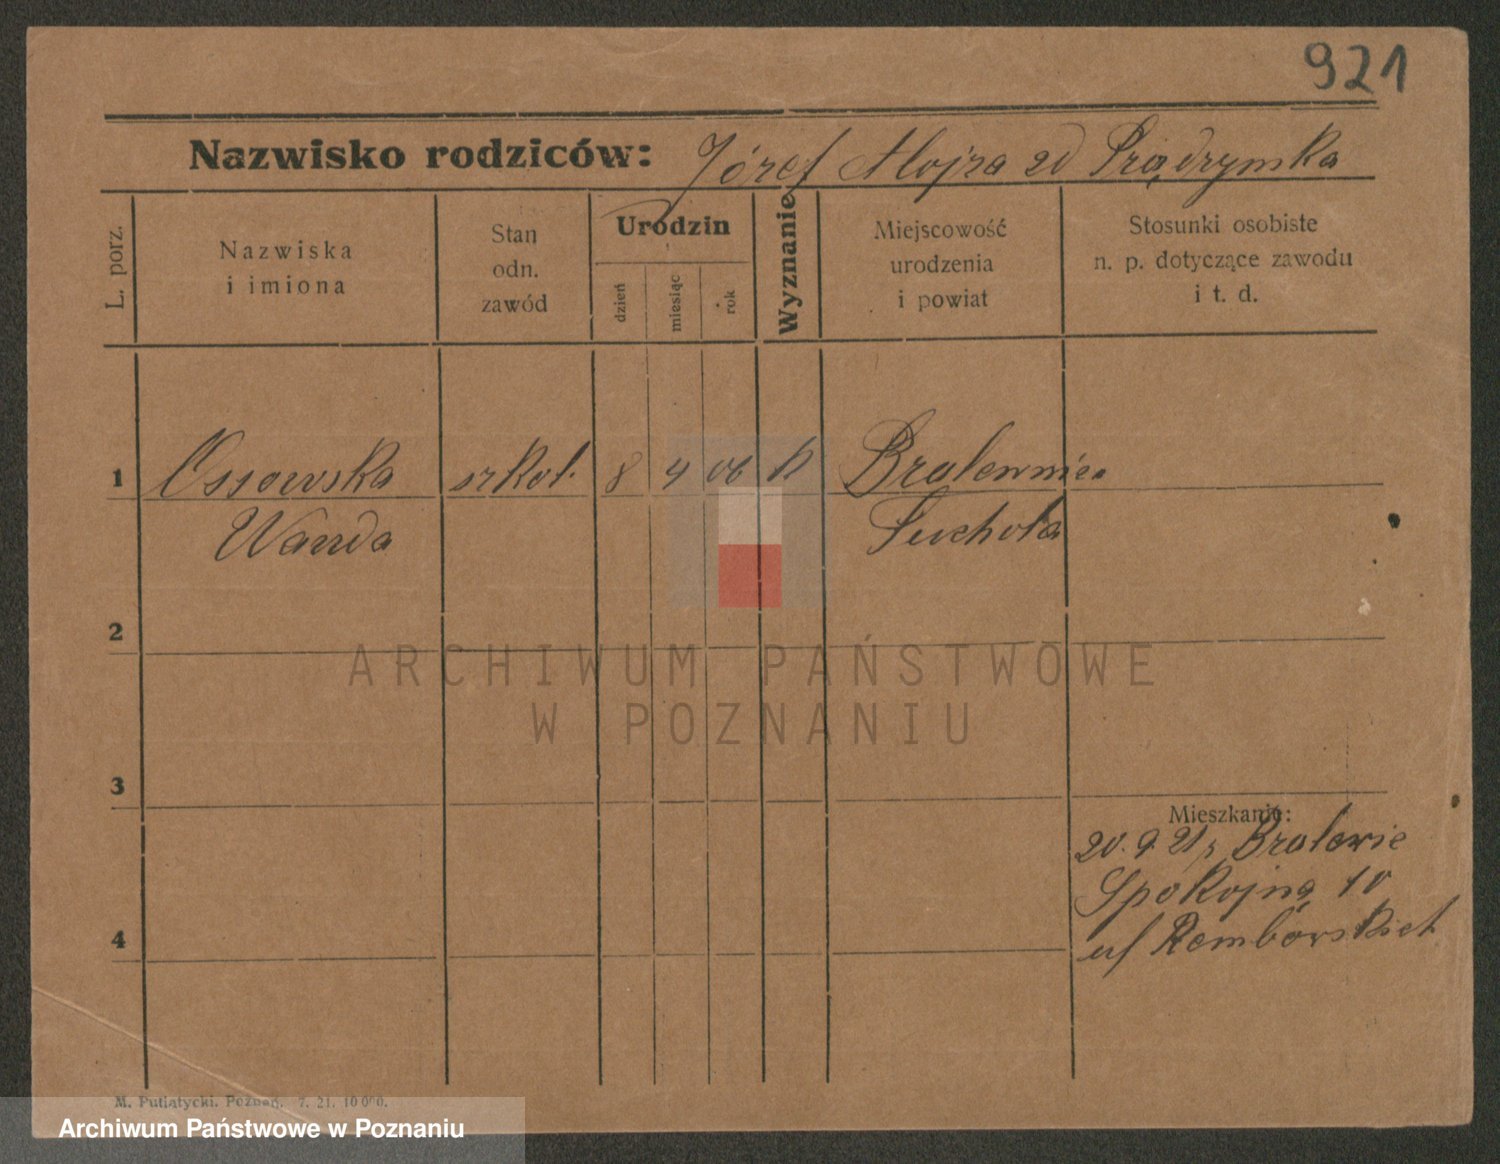 921
Nazwisko rodziców: Józef Alojza zd Prądzymka
L. porz.
Nazwiska
i imiona
Stan
odn.
zawód
Urodzin
dzień
miesiąc
rok
Wyznanie
Miejscowość
urodzenia
i powiat
Stosunki osobiste
n. p. dotyczące zawodu
i t. d.
1 Ossowska szkol. 8 4 06 k Bralewnica
Wanda Tuchola
2
ARCHIWUM PAŃSTWOWE
W POZNANIU
3
Mieszkanie:
20.9.21 z Bralewic
Spokojna 10
4
u/
M. Putiatycki. Poznań. 7. 21. 10 000.
Archiwum Państwowe w Poznaniu